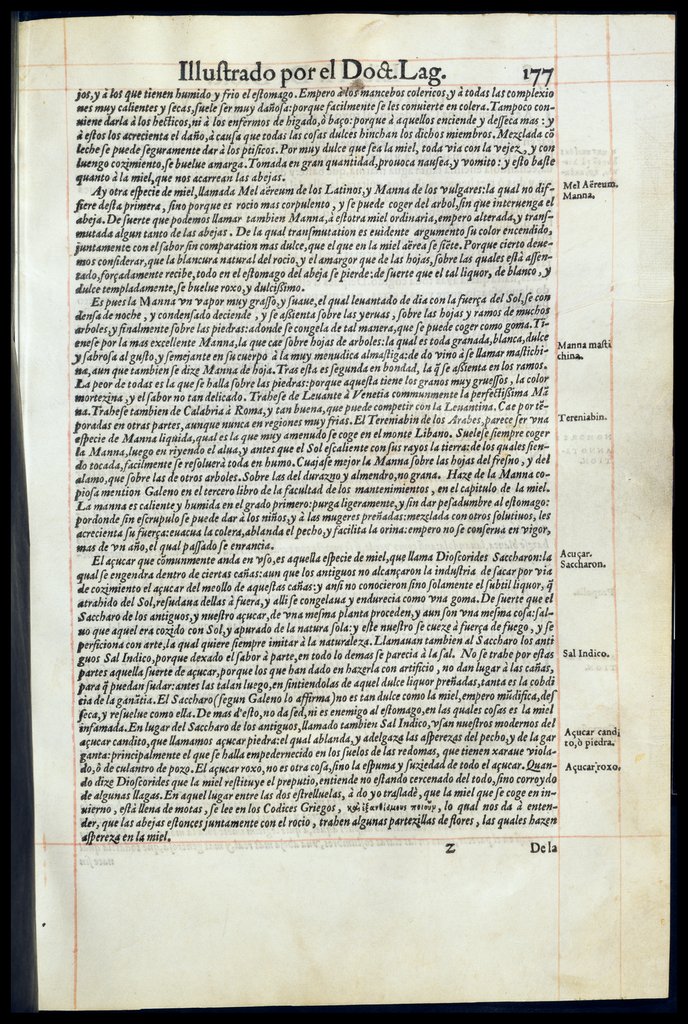 Illustrado por el Doct. Lag. 177
jos, y à los que tienen humido y frio el estomago. Empero à los mancebos colericos, y à todas las complexio
nes muy calientes y secas, suele ser muy dañosa: porque facilmente se les conuierte en colera. Tampoco con-
uiene darla à los hecticos, ni à los enfermos de higado, ò baço: porque à aquellos enciende y desseca mas: y
à estos los acrecienta el daño, à causa que todas las cosas dulces hinchan los dichos miembros. Mezclada cõ
leche se puede seguramente dar à los ptisicos. Por muy dulce que sea la miel, toda via con la vejez, y con
luengo cozimiento, se buelue amarga. Tomada en gran quantidad, prouoca nausea, y vomito: y esto baste
quanto à la miel, que nos acarrean las abejas.
Ay otra especie de miel, llamada Mel aëreum de los Latinos, y Manna de los vulgares: la qual no dif-
fiere desta primera, sino porque es rocio mas corpulento, y se puede coger del arbol, sin que interuenga el
abeja. De suerte que podemos llamar tambien Manna, à estotra miel ordinaria, empero alterada, y trans-
mutada algun tanto de las abejas. De la qual transmutation es euidente argumento su color encendido,
juntamente con el sabor sin comparation mas dulce, que el que en la miel aërea se siẽte. Porque cierto deue-
mos considerar, que la blancura natural del rocio, y el amargor que de las hojas, sobre las quales està assen-
tado, forçadamente recibe, todo en el estomago del abeja se pierde: de suerte que el tal liquor, de blanco, y
dulce templadamente, se buelue roxo, y dulcissimo.
Es pues la Manna vn vapor muy grasso, y suaue, el qual leuantado de dia con la fuerça del Sol, se con
densa de noche, y condensado deciende, y se assienta sobre las yeruas, sobre las hojas y ramos de muchos
arboles, y finalmente sobre las piedras: adonde se congela de tal manera, que se puede coger como goma. Ti-
enese por la mas excellente Manna, la que cae sobre hojas de arboles: la qual es toda granada, blanca, dulce
y sabrosa al gusto, y semejante en su cuerpo à la muy menudica almastiga: de do vino à se llamar mastichi-
na, aun que tambien se dize Manna de hoja. Tras esta es segunda en bondad, la q̃ se assienta en los ramos.
La peor de todas es la que se halla sobre las piedras: porque aquesta tiene los granos muy gruessos, la color
mortezina, y el sabor no tan delicado. Trahese de Leuante à Venetia communmente la perfectissima Mã
na. Trahese tambien de Calabria à Roma, y tan buena, que puede competir con la Leuantina. Cae por tẽ-
poradas en otras partes, aunque nunca en regiones muy frias. El Tereniabin de los Arabes, parece ser vna
especie de Manna liquida, qual es la que muy amenudo se coge en el monte Libano. Suelese siempre coger
la Manna, luego en riyendo el alua, y antes que el Sol escaliente con sus rayos la tierra: de los quales sien-
do tocada, facilmente se resoluerà toda en humo. Cuajase mejor la Manna sobre las hojas del fresno, y del
alamo, que sobre las de otros arboles. Sobre las del durazno y almendro, no grana. Haze de la Manna co-
piosa mention Galeno en el tercero libro de la facultad de los mantenimientos, en el capitulo de la miel.
La manna es caliente y humida en el grado primero: purga ligeramente, y sin dar pesadumbre al estomago:
por donde sin escrupulo se puede dar à los niños, y à las mugeres preñadas: mezclada con otros solutiuos, les
acrecienta su fuerça: euacua la colera, ablanda el pecho, y facilita la orina: empero no se conserua en vigor,
mas de vn año, el qual passado se enrancia.
El açucar que cõmunmente anda en vso, es aquella especie de miel, que llama Dioscorides Saccharon: la
qual se engendra dentro de ciertas cañas: aun que los antiguos no alcançaron la industria de sacar por via
de cozimiento el açucar del meollo de aquestas cañas: y ansi no conocieron sino solamente el subtil liquor, q̃
atrahido del Sol, resudaua dellas à fuera, y alli se congelaua y endurecia como vna goma. De suerte que el
Saccharo de los antiguos, y nuestro açucar, de vna mesma planta proceden, y aun son vna mesma cosa: sal-
uo que aquel era cozido con Sol, y apurado de la natura sola: y este nuestro se cueze à fuerça de fuego, y se
perficiona con arte, la qual quiere siempre imitar à la naturaleza. Llamauan tambien al Saccharo los anti
guos Sal Indico, porque dexado el sabor à parte, en todo lo demas se parecia à la sal. No se trahe por estas
partes aquella suerte de açucar, porque los que han dado en hazerla con artificio, no dan lugar à las cañas,
para q̃ puedan sudar: antes las talan luego, en sintiendolas de aquel dulce liquor preñadas, tanta es la cobdi
cia de la ganãtia. El Saccharo (segun Galeno lo affirma) no es tan dulce como la miel, empero mũdifica, des
seca, y resuelue como ella. De mas d'esto, no da sed, ni es enemigo al estomago, en las quales cosas es la miel
infamada. En lugar del Saccharo de los antiguos, llamado tambien Sal Indico, vsan nuestros modernos del
açucar candito, que llamamos açucar piedra: el qual ablanda, y adelgaza las asperezas del pecho, y de la gar
ganta: principalmente el que se halla empedernecido en los suelos de las redomas, que tienen xaraue viola-
do, ò de culantro de pozo. El açucar roxo, no es otra cosa, sino la espuma y suziedad de todo el açucar. Quan-
do dize Dioscorides que la miel restituye el preputio, entiende no estando cercenado del todo, sino corroydo
de algunas llagas. En aquel lugar entre las dos estrelluelas, à do yo trasladè, que la miel que se coge en in-
uierno, està llena de motas, se lee en los Codices Griegos, lo qual nos da à enten-
der, que las abejas estonces juntamente con el rocio, trahen algunas partezillas de flores, las quales hazen
aspereza en la miel.
Z De la
Mel Aëreum.
Manna.
Manna masti
china.
Tereniabin.
Açucar.
Saccharon.
Sal Indico.
Açucar candi
to, ò piedra.
Açucar roxo.